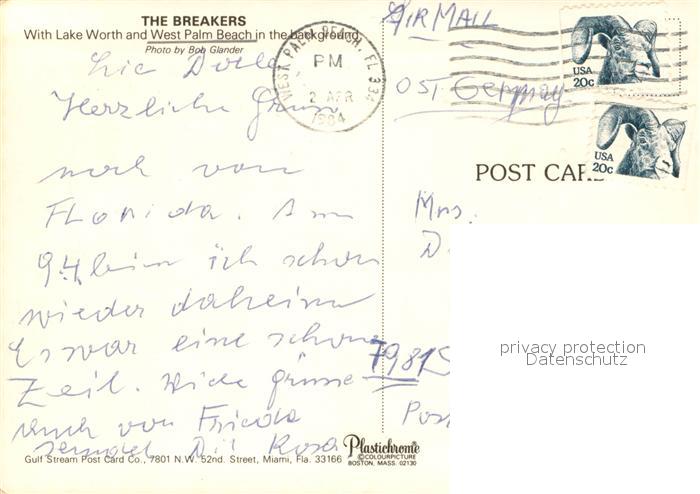 THE BREAKERS
With Lake Worth and West Palm Beach in the background.
Photo by Bob Glander
WEST PALM BEACH, FL 334
PM
2 APR
1984
AIR MAIL
USA
20c
OST Germany
USA
20c
POST CAR
Herzliche
noch von
Florida. Am
9.4. bin ich schon
wieder daheim
Es war eine schone
Zeit. Viele Grüsse
auch von Frieda
sendet Dir Rosa
Mrs.
D
privacy protection
Datenschutz
Plastichrome®
©COLOURPICTURE
BOSTON, MASS. 02130
Gulf Stream Post Card Co., 7801 N.W. 52nd. Street, Miami, Fla. 33166